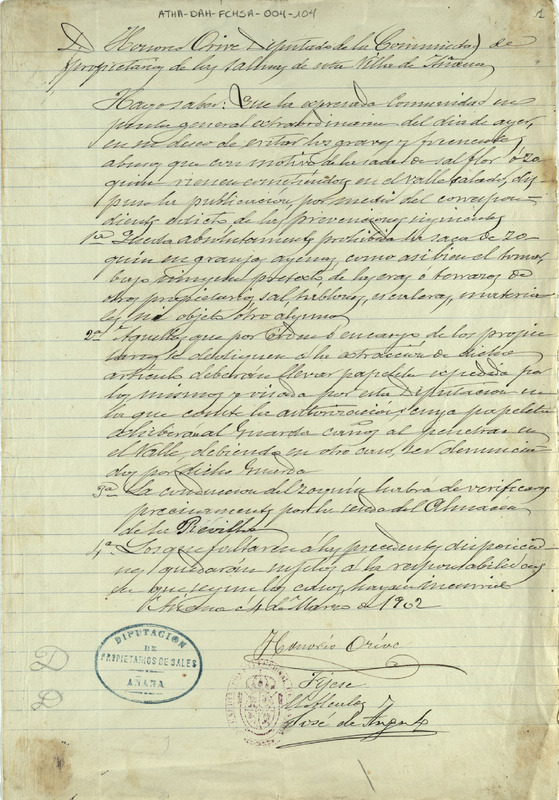 ATHA-DAH-FCHSA-004-104
1
D. Honorio Orive Diputado de la Comunidad de
propietarios de las salinas de esta Villa de Añana
Hago saber: Que la expresada Comunidad en
junta general extraordinaria del dia de ayer,
en su deseo de evitar los graves y frecuentes
abusos que con motivo de la saca de sal flor ó zo-
quin vienen cometiéndose en el valle salado, dis-
puso la publicacion por medio del correspon-
diente edicto de las prevenciones siguientes
1ª Queda absolutamente prohibida la saca de zo-
quin en granjas ajenas, como asi bien el tomar
bajo ningun pretexto de las eras ó terrazos de
otros propietarios sal, tablones, escaleras, materia-
les ni objeto otro alguno
2ª Aquellos que por orden ó encargo de los propie-
tarios se dediquen á la extraccion de dicho
articulo deberán llevar papeleta expedida por
los mismos y visada por esta Diputacion en
la que conste la autorizacion, cuya papeleta
exhiberán al Guarda cuando al penetrar en
el Valle, debiendo en otro caso, ser denuncia-
dos por dicho Guarda
3ª La conduccion del zoquin habra de verificarse
precisamente por la senda del Almacen
de la Revilla
4ª Los que faltaren á las precedentes disposicio-
nes quedarán sujetos á la responsabilidad
en que segun los casos hayan incurrido
Añana 4 de Marzo de 1902
Honorio Orive
DIPUTACION
DE
PROPIETARIOS DE SALES
AÑANA
Fijese
El Alcalde
José de Angulo